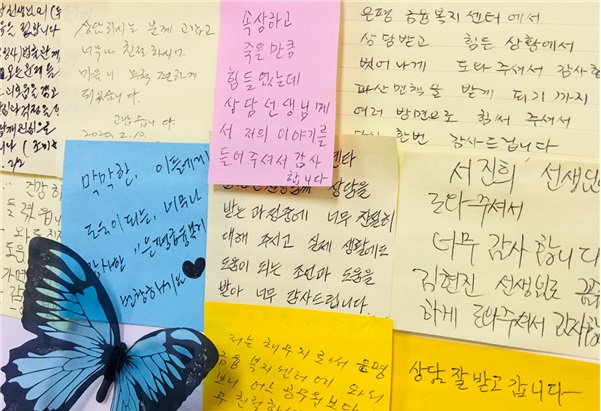 상담하시는 분께 고맙고
너무나 친절 하시어
마음이 무척 편하게
되었습니다.
고맙습니다
2020. 2. 10.
속상하고
죽을만큼
힘들었는데
상담 선생님께
서 저의 이야기를
들어주셔서 감사
합니다
은평 금융복지 센터에서
상담받고 힘든 상황에서
벗어나게 도와 주셔서 감사합
파산면책을 받게 되기 까지
여러 방면으로 힘써 주셔서
다시 한번 감사드립니다
막막한, 이들에게
도움이되는, 너무나
감사한
"은평금융복지
번창하세요 ♥
센타
상담을
받는 과정중에 너무 친절히
대해 주시고 실제 생활에도
도움이 되는 조언과 도움을
받아 너무 감사드립니다.
서진희 선생님
도와주셔서
너무 감사합니다
김현진 선생님도 꼼꼼
하게 도와주셔서 감사합
저는 채무자로서 은평
금융복지센터에 와서
보니 어느 공무원보다
상담 잘 받고 갑니다